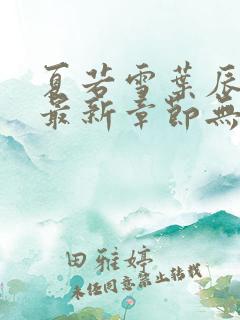 夏若雪葉辰
最新章節無
田雅婷
未经同意禁止转载